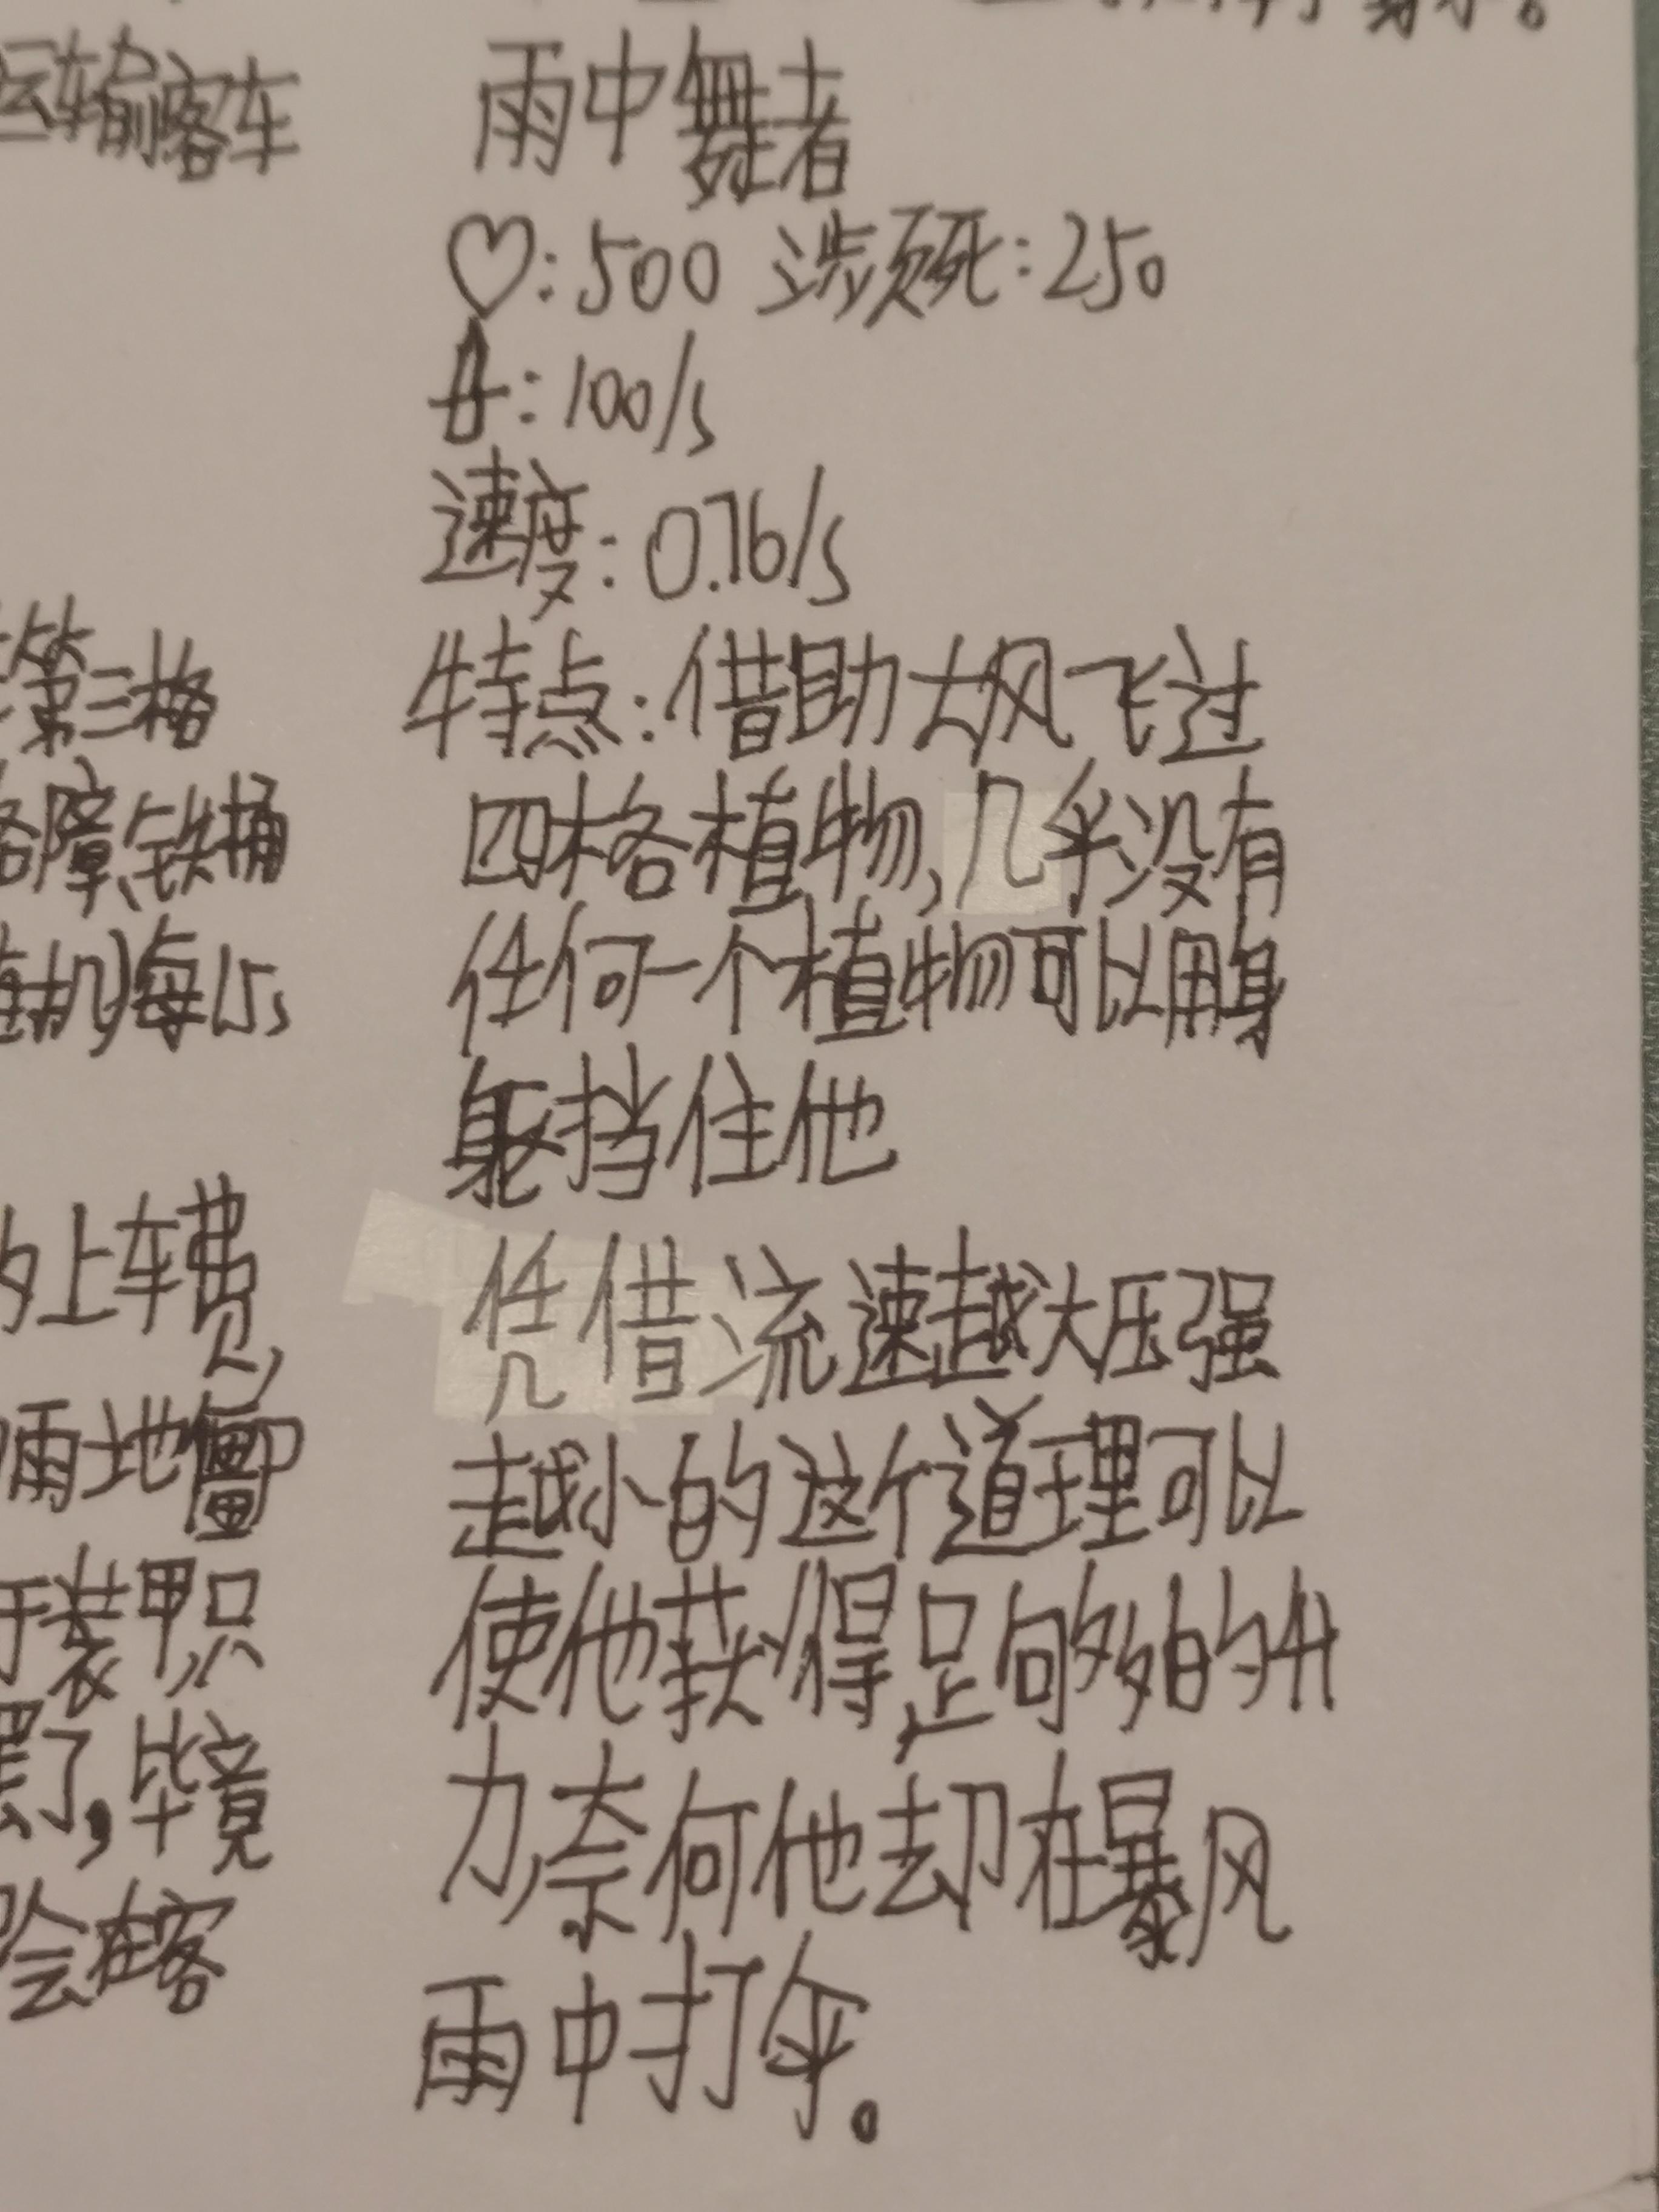 运输客车
雨中舞者
♡:500 濒死:250
:100/s
速度:0.76/s
第三格
特点:借助大风飞过
路障、铁桶
四格植物,几乎没有
每15s
任何一个植物可以用身
躯挡住他
的上车费,
凭借流速越大压强
雨地僵尸
越小的这个道理可以
于装甲只
使他获得足够的升
罢了,毕竟
力,奈何他却在暴风
会在客
雨中打伞。